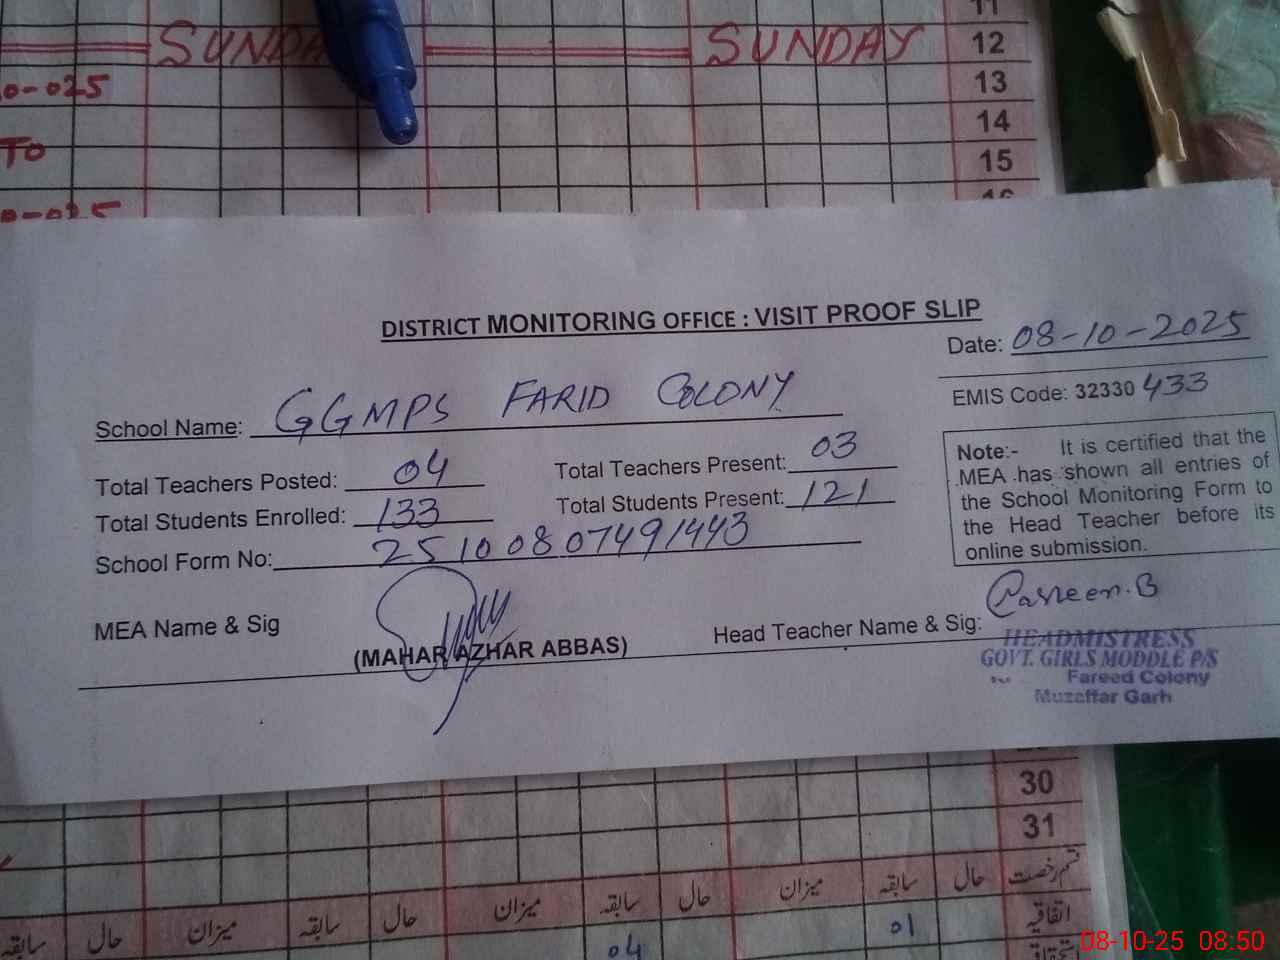 SUNDAY SUNDAY
11
12
13
14
15
16
0-025
TO
0-025
DISTRICT MONITORING OFFICE : VISIT PROOF SLIP
Date: 08-10-2025
EMIS Code: 32330 433
School Name: GGMPS FARID COLONY
Total Teachers Posted: 04 Total Teachers Present: 03
Total Students Enrolled: 133 Total Students Present: 121
School Form No: 25100807491443
Note:- It is certified that the
MEA has shown all entries of
the School Monitoring Form to
the Head Teacher before its
online submission.
MEA Name & Sig
(MAHAR AZHAR ABBAS)
Head Teacher Name & Sig:
HEADMISTRESS
GOVT. GIRLS MODDLE P/S
Fareed Colony
Muzaffar Garh
30
31
قسم رخصت حال سابقہ میزان حال سابقہ میزان حال سابقہ میزان حال سابقہ
اتفاقیہ 01 04
08-10-25 08:50